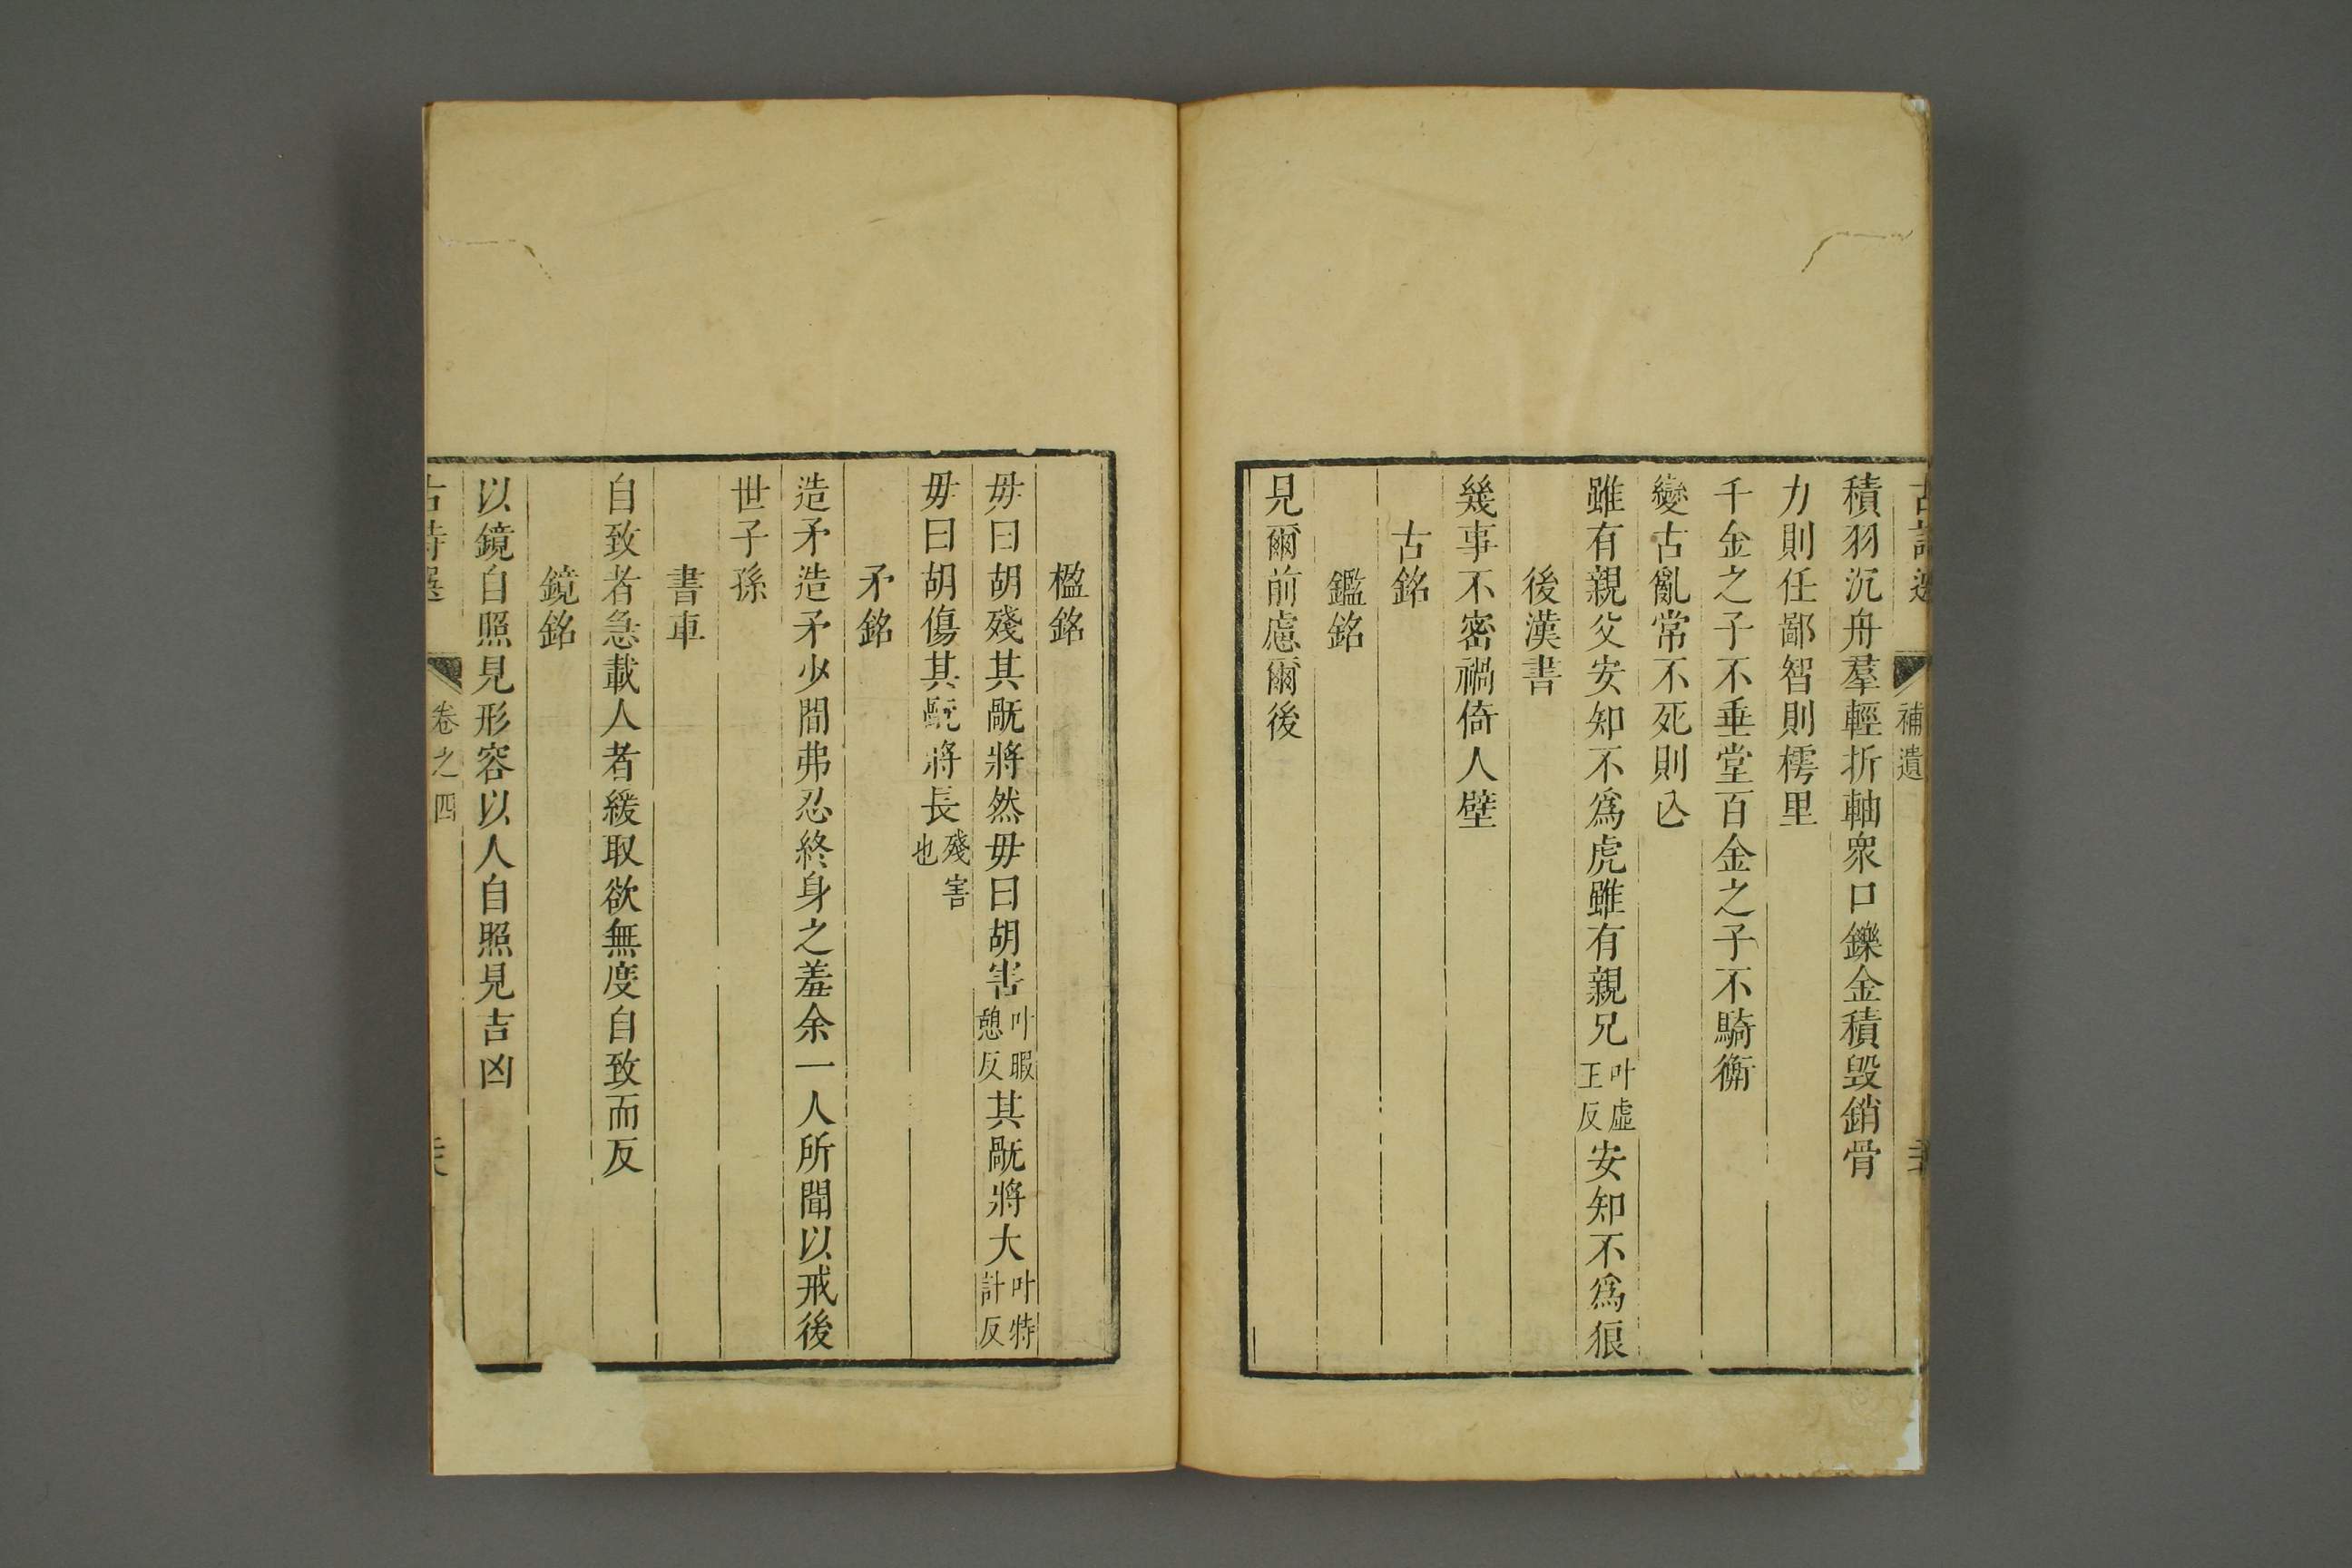 補遺
積羽沉舟羣輕折軸衆口鑠金積毁銷骨
力則任鄙智則樗里
千金之子不垂堂百金之子不騎衡
變古亂常不死則亾
雖有親父安知不爲虎雖有親兄叶虛王反安知不爲狼
後漢書
幾事不密禍倚人壁
古銘
鑑銘
見爾前慮爾後
楹銘
毋曰胡殘其㫺將然毋曰胡害叶暇憩反其㫺將大叶特計反
毋曰胡傷其㫺將長殘害也
矛銘
造矛造矛少間弗忍終身之羞余一人所聞以戒後
世子孫
書車
自致者急載人者緩取欲無度自致而反
鏡銘
以鏡自照見形容以人自照見吉凶
古詩選
卷之四